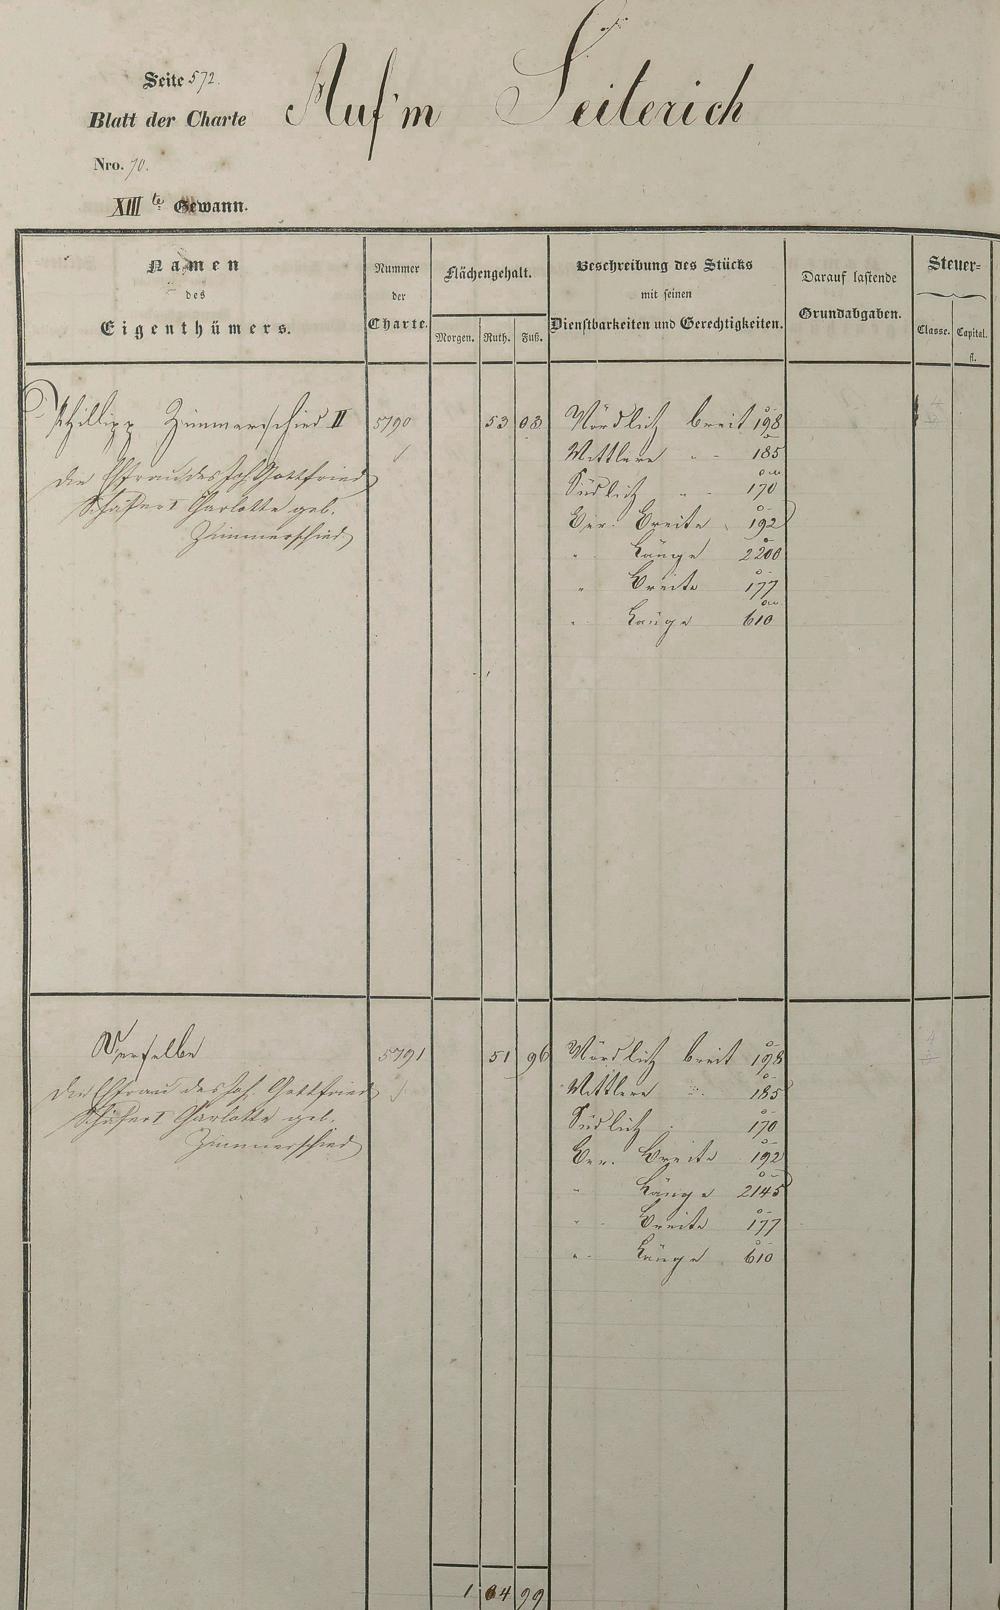 Seite 572.
Auf'm Seiterich
Blatt der Charte
Nro. 70.
XIII te Gewann.
Namen des Eigenthümers.
Nummer der Charte.
Flächengehalt.
Morgen. Ruth. Fuß.
Beschreibung des Stücks mit seinen Dienstbarkeiten und Gerechtigkeiten.
Darauf lastende Grundabgaben.
Steuer=
Classe. Capital. fl.
Phillipp Zimmerschied II 5790 53 03 Nördlich breit 198
Mittlere " - 185
die Ehfrau des Joh. Gottfried
Südlich " - 170
Schäfers Charlotte geb.
Ber. Breite 192
Zimmerschied
" Länge 2200
" Breite 177
" Länge 610
Derselbe 5791 51 96 Nördlich breit 198
die Ehfrau des Joh. Gottfried
Mittlere " 185
Schäfers Charlotte geb.
Südlich " 170
Zimmerschied
Ber. Breite 192
" Länge 2145
" Breite 177
" Länge 610
1 04 99